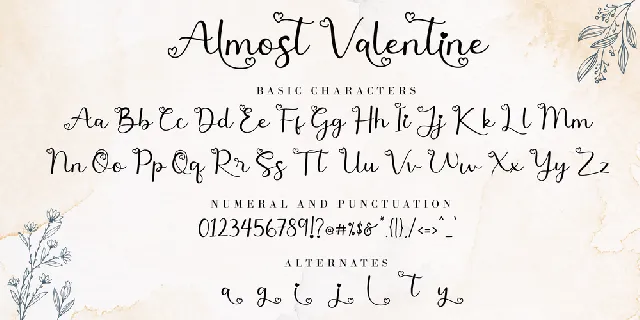 Almost Valentine
BASIC CHARACTERS
Aa Bb Cc Dd Ee Ff Gg Hh Ii Jj Kk Ll Mm
Nn Oo Pp Qq Rr Ss Tt Uu Vv Ww Xx Yy Zz
NUMERAL AND PUNCTUATION
0123456789!?@#%$&
ALTERNATES
a g i j l t y